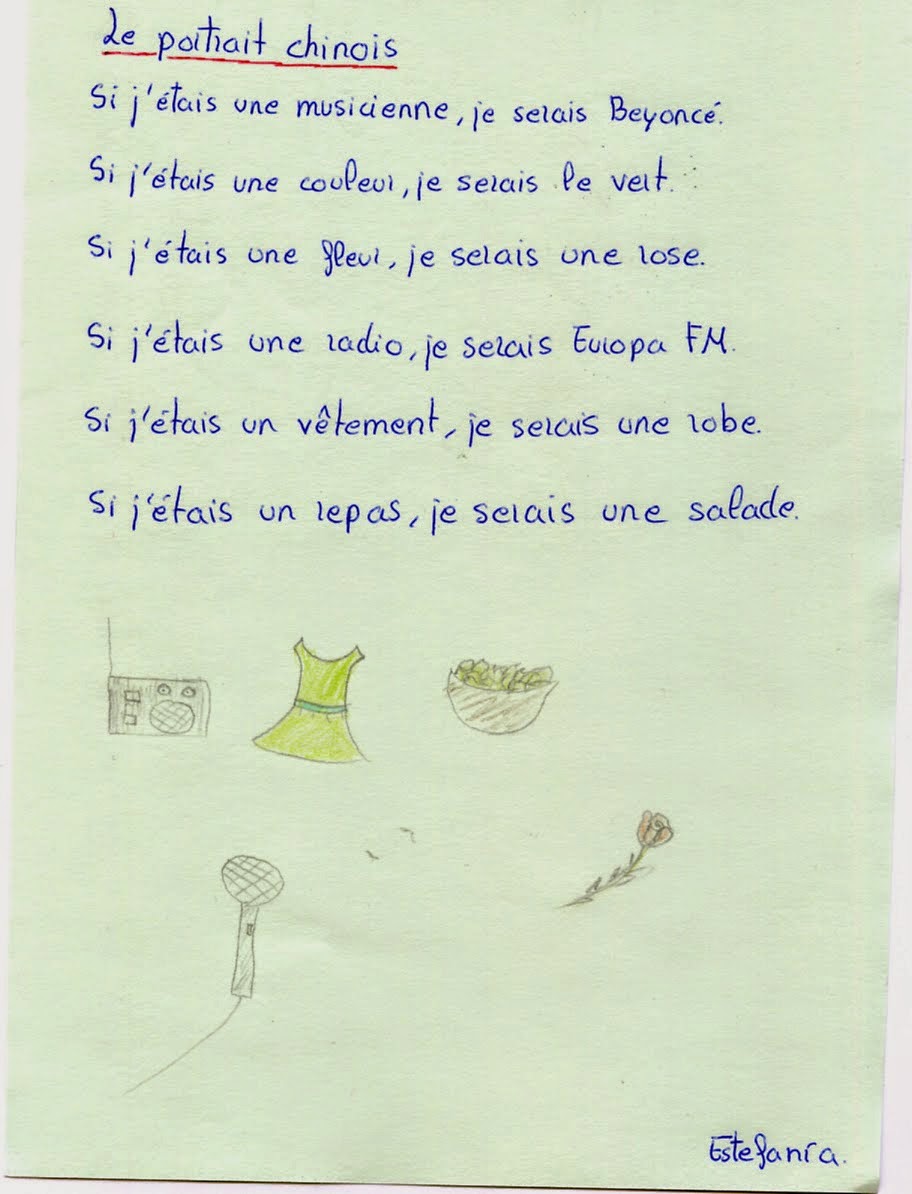 Le portrait chinois
Si j'étais une musicienne, je serais Beyoncé.
Si j'étais une couleur, je serais le vert.
Si j'étais une fleur, je serais une rose.
Si j'étais une radio, je serais Europa FM.
Si j'étais un vêtement, je serais une robe.
Si j'étais un repas, je serais une salade.
Estefanía.